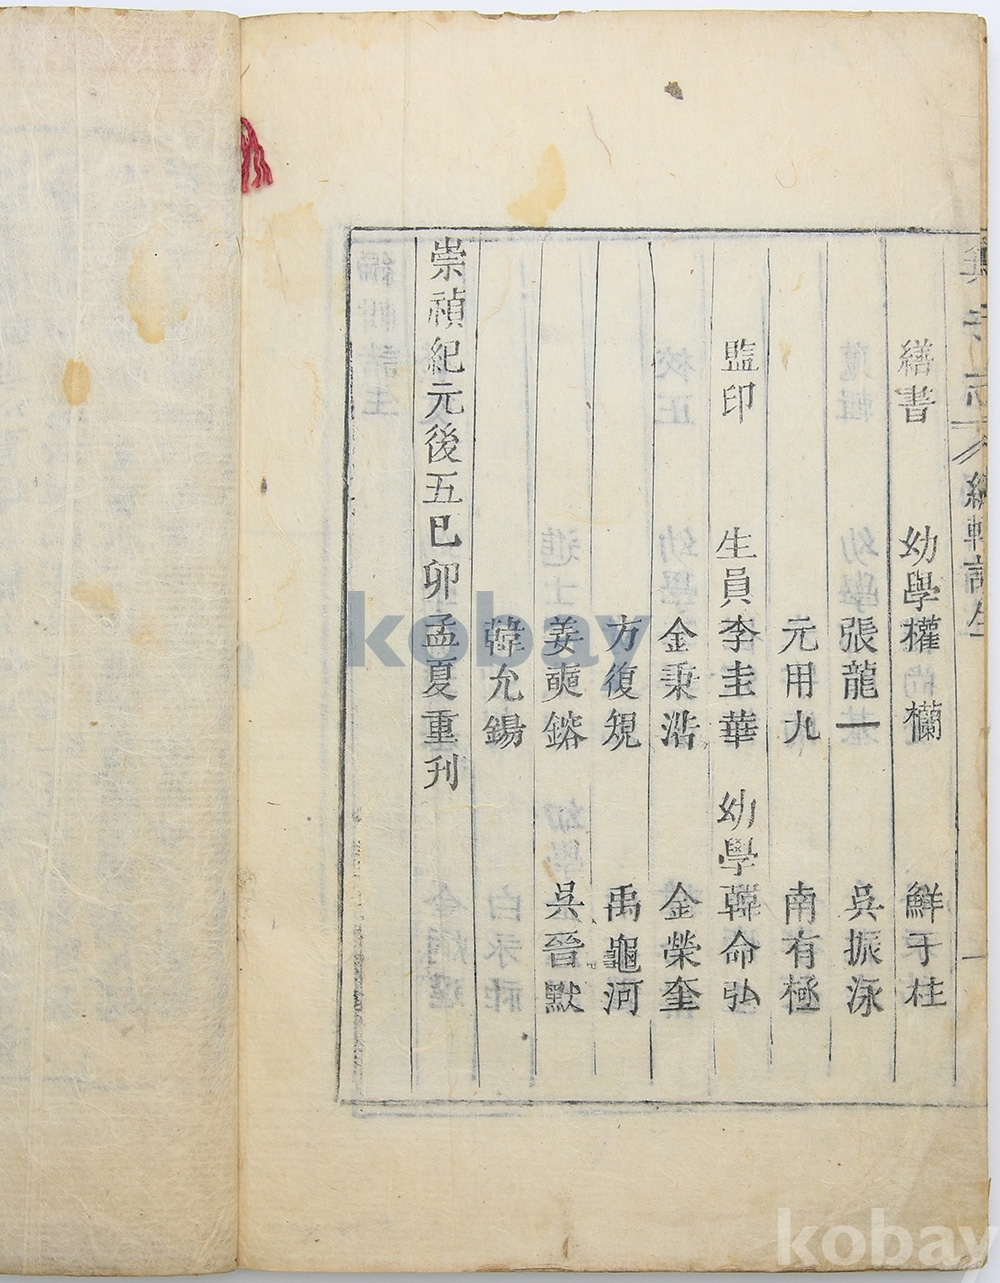 繕書 幼學權欄 鮮于柱
張龍一 吳振泳
元用九 南有極
監印 生員李圭華 幼學韓命弘
金秉浩 金榮奎
方復規 禹龜河
姜奭鎔 吳晉默
韓允錫
崇禎紀元後五己卯孟夏重刊
編輯諸生
kobay
kobay